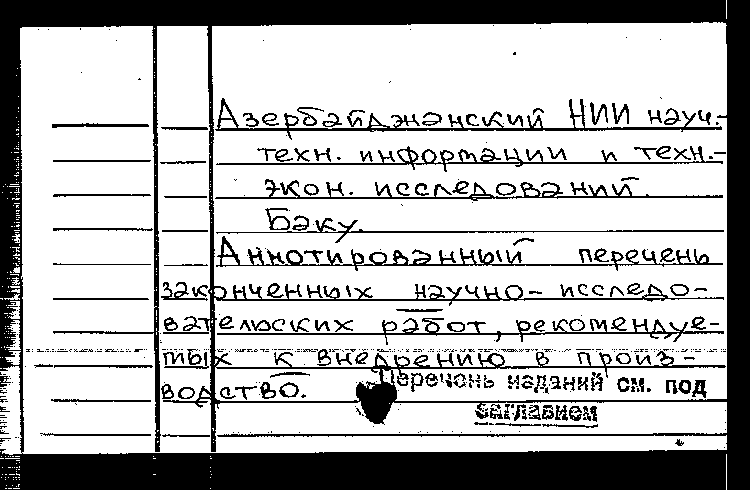 Азербайджанский НИИ науч.-
техн. информации и техн.-
экон. исследований.
Баку.
Аннотированный перечень
законченных научно-исследо-
вательских работ, рекомендуе-
мых к внедрению в произ-
водство.
Перечень изданий см. под
заглавием